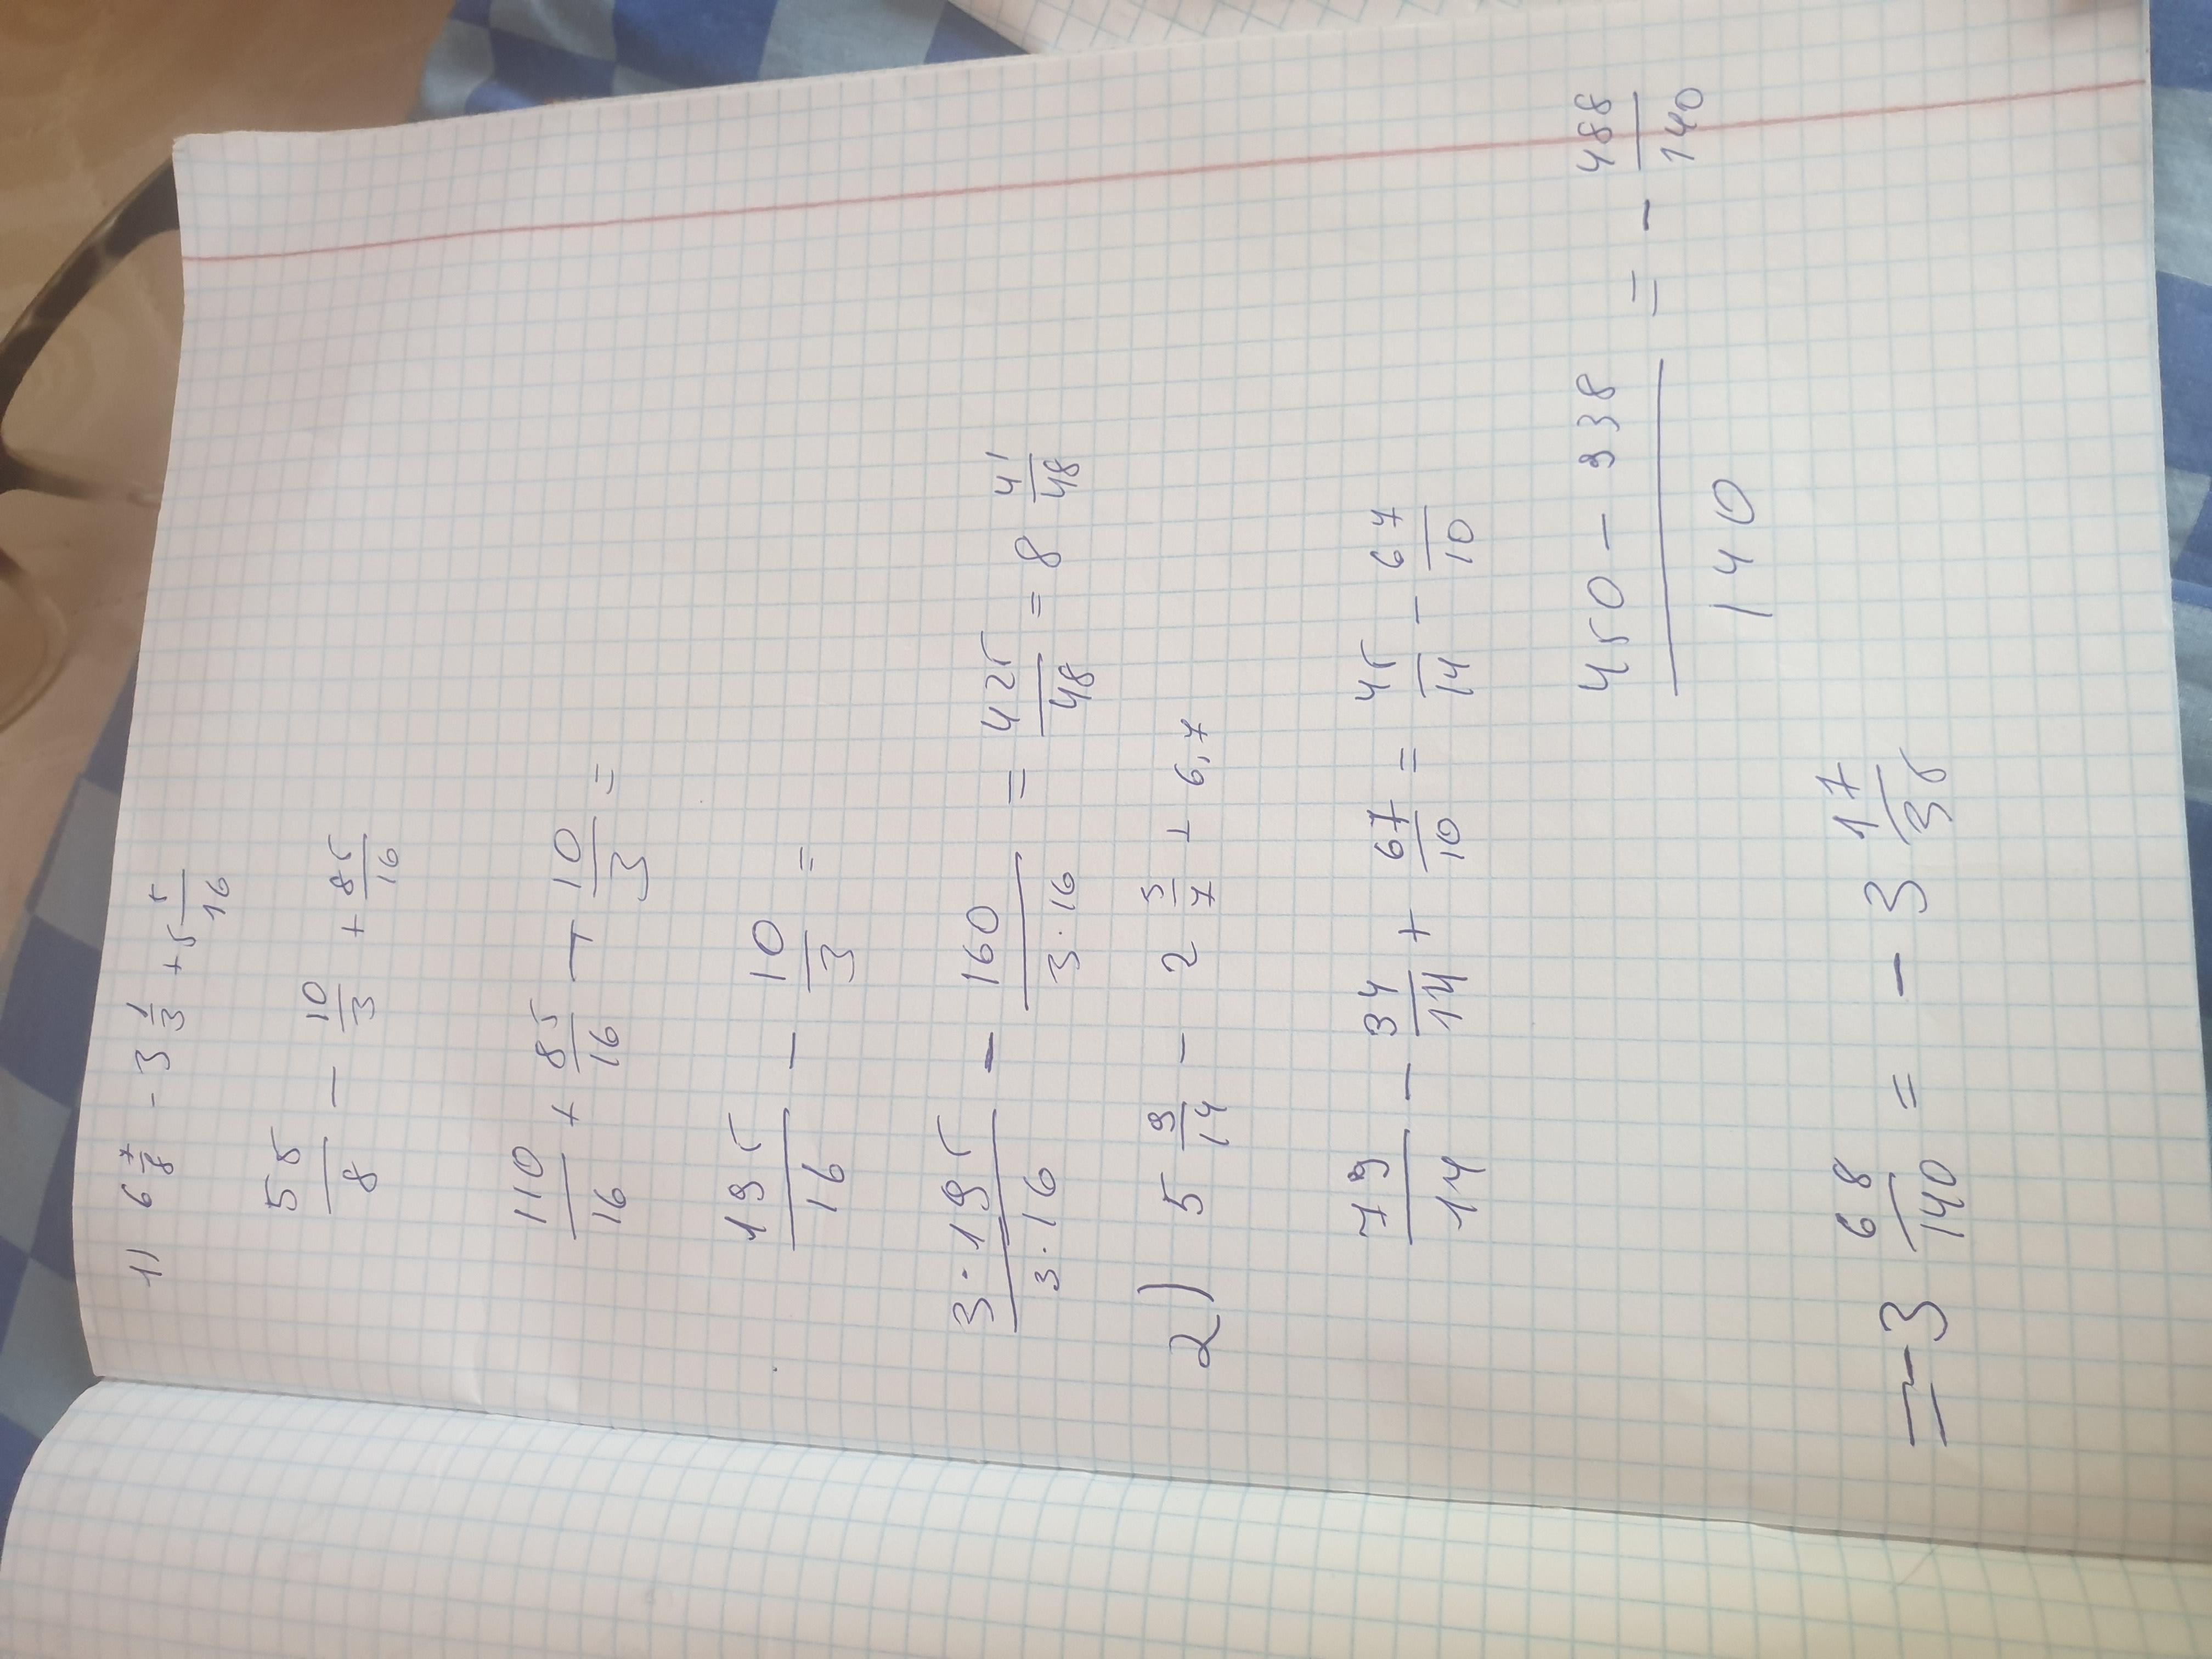 1) 6 7/8 - 3 1/3 + 5 5/16
55/8 - 10/3 + 85/16
110/16 + 85/16 - 10/3 =
195/16 - 10/3 =
3·195/3·16 - 160/3·16 = 425/48 = 8 41/48
2) 5 9/14 - 2 3/7 + 6,7
79/14 - 34/14 + 67/10 = 45/14 - 67/10
450 - 938/140 = - 488/140
= -3 68/140 = - 3 17/35